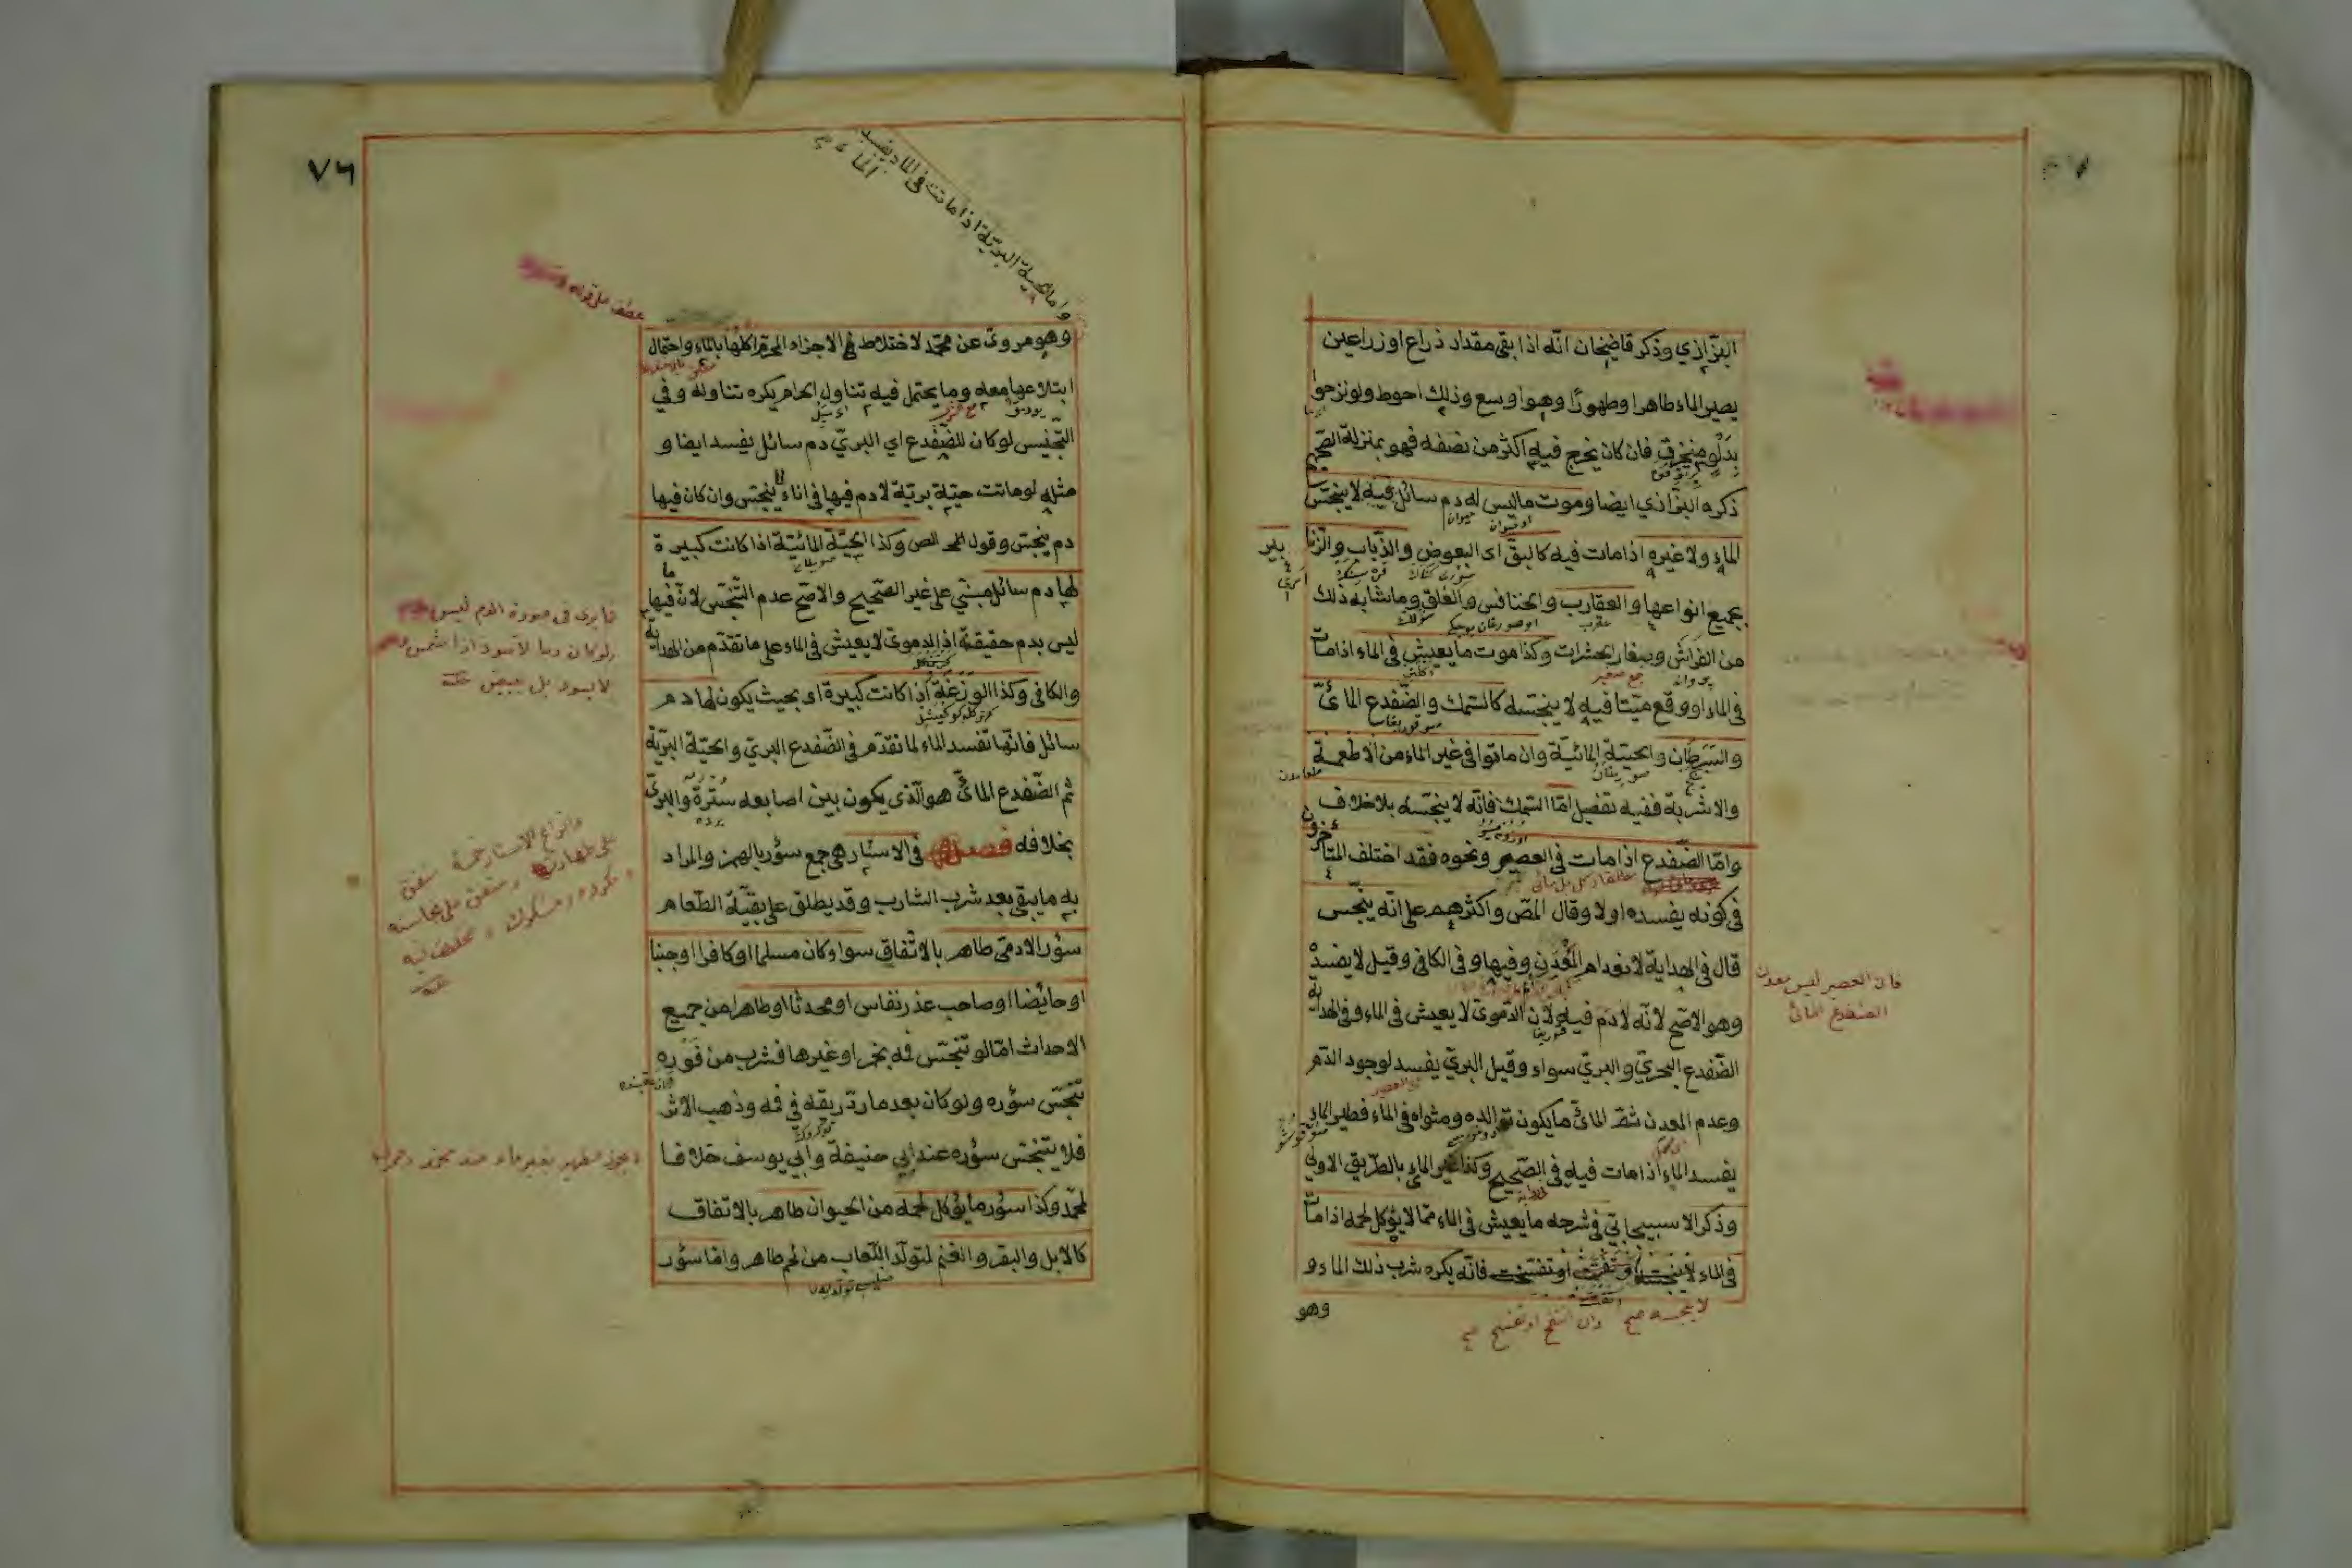 البزازي وذكر قاضيخان انه اذا بقي مقدار ذراع او زراعين
يصير الماء طاهرا وطهورًا وهو اوسع وذلك احوط ولو نزحوا
بدلو منخرق فان كان يخرج فيه اكثر من نصفه فهو بمنزلة الصحيح
ذكره البزازي ايضا وموت ما ليس له دم سائل فيه لا ينجس
الماء ولا غيره اذا مات فيه كالبق اى البعوض والذباب والزنا
بير
بجميع انواعها والعقارب والخنافس والعلق وما شابه ذلك
من الفراش وصغار الحشرات وكذا موت ما يعيش في الماء اذا مات
في الماء او وقع ميتا فيه لا ينجسه كالسمك والضفدع المائي
والسرطان والحية المائية وان ماتوا في غير الماء من الاطعمة
والاشربة ففيه تفصيل اما السمك فانه لا ينجسه بلا خلاف
واما الضفدع اذا مات في العصير ونحوه فقد اختلف المتأخرون
في كونه يفسده او لا وقال المص واكثرهم على انه ينجس
قال في الهداية لانعدام المعدن وفيها وفي الكافي وقيل لا يفسد
وهو الاصح لانه لا دم فيه لان الدموى لا يعيش في الماء وفي الهداية
الضفدع البحري والبري سواء وقيل البري يفسد لوجود الدم
وعدم المعدن ثم المائي ما يكون توالده ومثواه في الماء فطير الماء
يفسد الماء اذا مات فيه في الصحيح وكذا غير الماء بالطريق الاولى
وذكر الاسبيجابي في شرحه ما يعيش في الماء مما لا يؤكل لحمه اذا مات
في الماء لا ينجسه او تفسخت فانه يكره شرب ذلك الماء و
لا ينجسه صح وان انتفخ او تفسخ صح
وهو
فان العصير ليس معدن
الضفدع المائى
٧٦
واما الحية البرية اذا ماتت في الماء يفسد
الماء
عطف على قوله
وهو مروى عن محمد لاختلاط الاجزاء المحرم اكلها بالماء واحتمال
ابتلاعها معه وما يحتمل فيه تناول الحرام يكره تناوله وفي
التجنيس لو كان للضفدع اي البري دم سائل يفسد ايضا و
مثله لو ماتت حية برية لا دم فيها في اناء لا ينجس وان كان فيها
دم ينجس وقول المص وكذا الحية المائية اذا كانت كبيرة
لها دم سائل مبني على غير الصحيح والاصح عدم التنجس لان ما فيها
ليس بدم حقيقة اذ الدموى لا يعيش في الماء على ما تقدم من الهداية
والكافي وكذا الوزغة اذا كانت كبيرة اى بحيث يكون لها دم
سائل فانها تفسد الماء لما تقدم في الضفدع البري والحية البرية
ثم الضفدع المائي هو الذى يكون بين اصابعه سترة والبري
بخلافه فصل في الاسئار هي جمع سؤر بالهمز والمراد
به ما يبقى بعد شرب الشارب وقد يطلق على بقية الطعام
سؤر الادمى طاهر بالاتفاق سواء كان مسلما او كافرا او جنبا
او حائضا او صاحب عذر نفاس او محدثا او طاهرا من جميع
الاحداث اما لو تنجس فمه بخمر او غيرها فشرب من فوره
تنجس سؤره ولو كان بعد ما ردّ ريقه في فمه وذهب الاثر
فلا يتنجس سؤره عند ابي حنيفة وابي يوسف خلافا
لمحمد وكذا سؤر ما يؤكل لحمه من الحيوان طاهر بالاتفاق
كالابل والبقر والغنم لتولد اللعاب من لحم طاهر واما سؤر
ما يرى في صورة الدم ليس
ولو كان دما لاسود اذا شمس
لا يسود بل يبيض
وانواع الاسئار خمسة متفق
على طهارته ومتفق على نجاسته
ومكروه ومشكوك ومختلف فيه